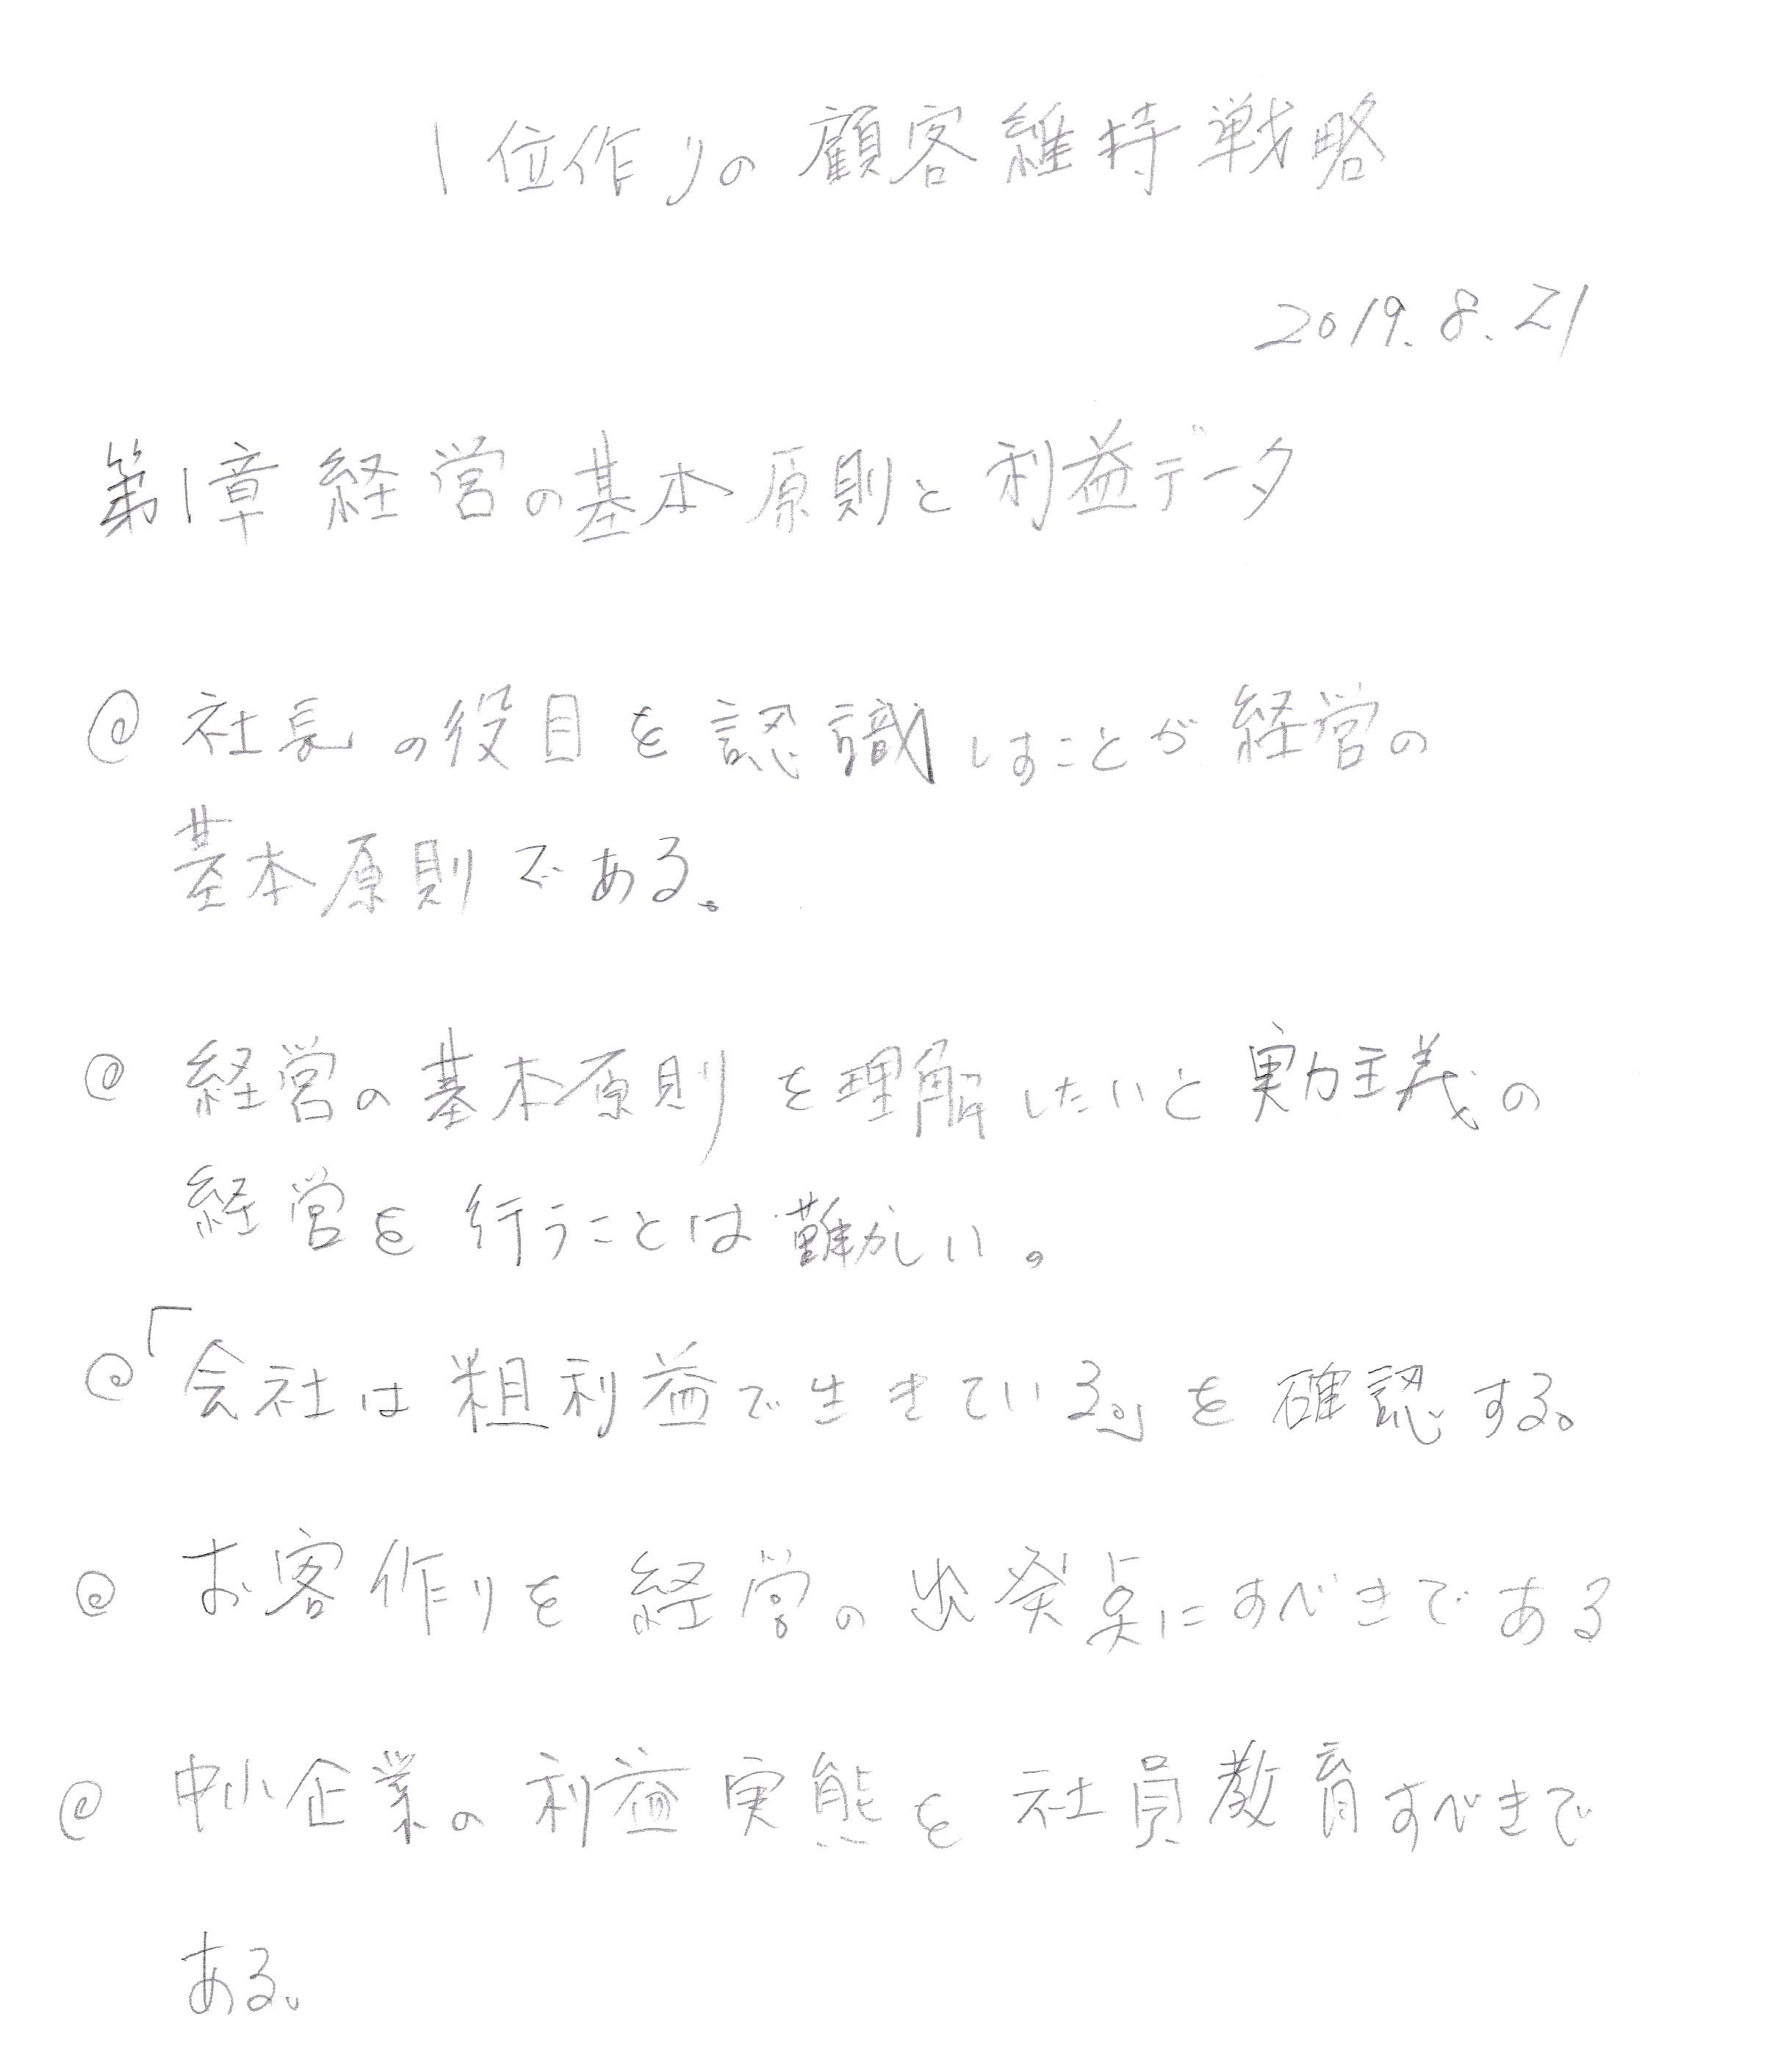 1位作りの顧客維持戦略
2019.8.21
第1章 経営の基本原則と利益データ
@ 社長の役目を認識しすことが経営の
基本原則である。
@ 経営の基本原則を理解したいと実力主義の
経営を行うことは難かしい。
@「会社は粗利益で生きている。」を確認する。
@ お客作りを経営の出発点にすべきである
@ 中小企業の利益実態を社員教育すべきで
ある。